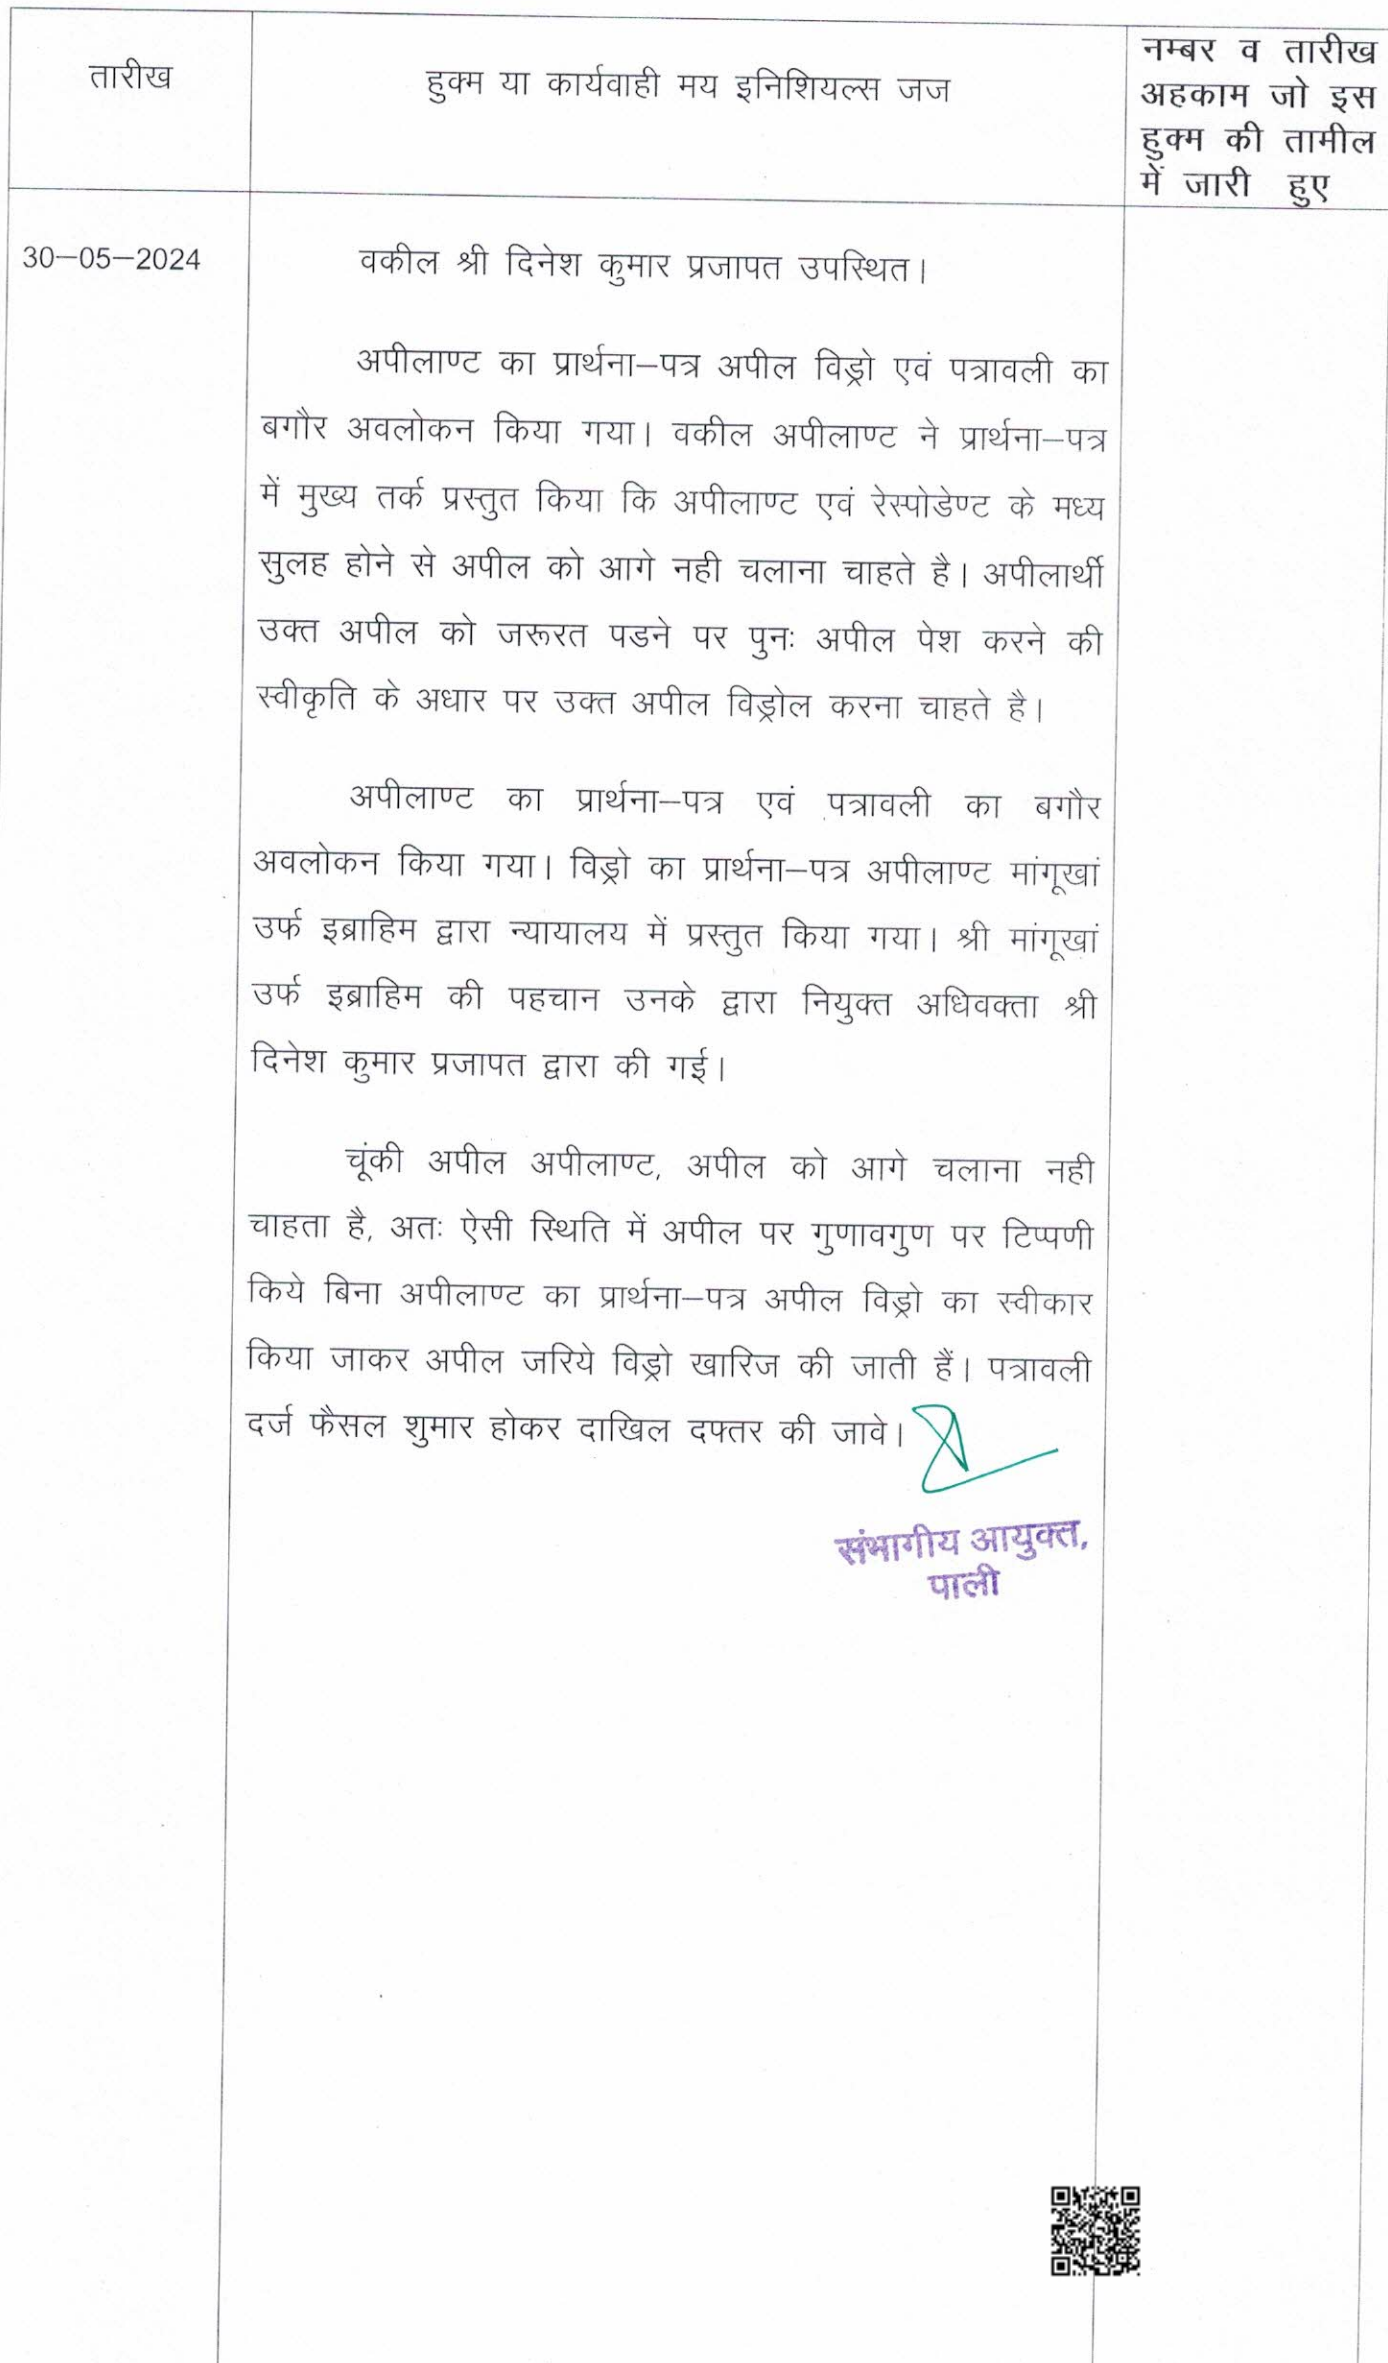 तारीख
हुक्म या कार्यवाही मय इनिशियल्स जज
नम्बर व तारीख
अहकाम जो इस
हुक्म की तामील
में जारी हुए
30–05–2024
वकील श्री दिनेश कुमार प्रजापत उपस्थित।
अपीलाण्ट का प्रार्थना–पत्र अपील विड्रो एवं पत्रावली का
बगौर अवलोकन किया गया। वकील अपीलाण्ट ने प्रार्थना–पत्र
में मुख्य तर्क प्रस्तुत किया कि अपीलाण्ट एवं रेस्पोडेण्ट के मध्य
सुलह होने से अपील को आगे नही चलाना चाहते है। अपीलार्थी
उक्त अपील को जरूरत पडने पर पुनः अपील पेश करने की
स्वीकृति के अधार पर उक्त अपील विड्रोल करना चाहते है।
अपीलाण्ट का प्रार्थना–पत्र एवं पत्रावली का बगौर
अवलोकन किया गया। विड्रो का प्रार्थना–पत्र अपीलाण्ट मांगूखां
उर्फ इब्राहिम द्वारा न्यायालय में प्रस्तुत किया गया। श्री मांगूखां
उर्फ इब्राहिम की पहचान उनके द्वारा नियुक्त अधिवक्ता श्री
दिनेश कुमार प्रजापत द्वारा की गई।
चूंकी अपील अपीलाण्ट, अपील को आगे चलाना नही
चाहता है, अतः ऐसी स्थिति में अपील पर गुणावगुण पर टिप्पणी
किये बिना अपीलाण्ट का प्रार्थना–पत्र अपील विड्रो का स्वीकार
किया जाकर अपील जरिये विड्रो खारिज की जाती हैं। पत्रावली
दर्ज फैसल शुमार होकर दाखिल दफ्तर की जावे।
संभागीय आयुक्त,
पाली